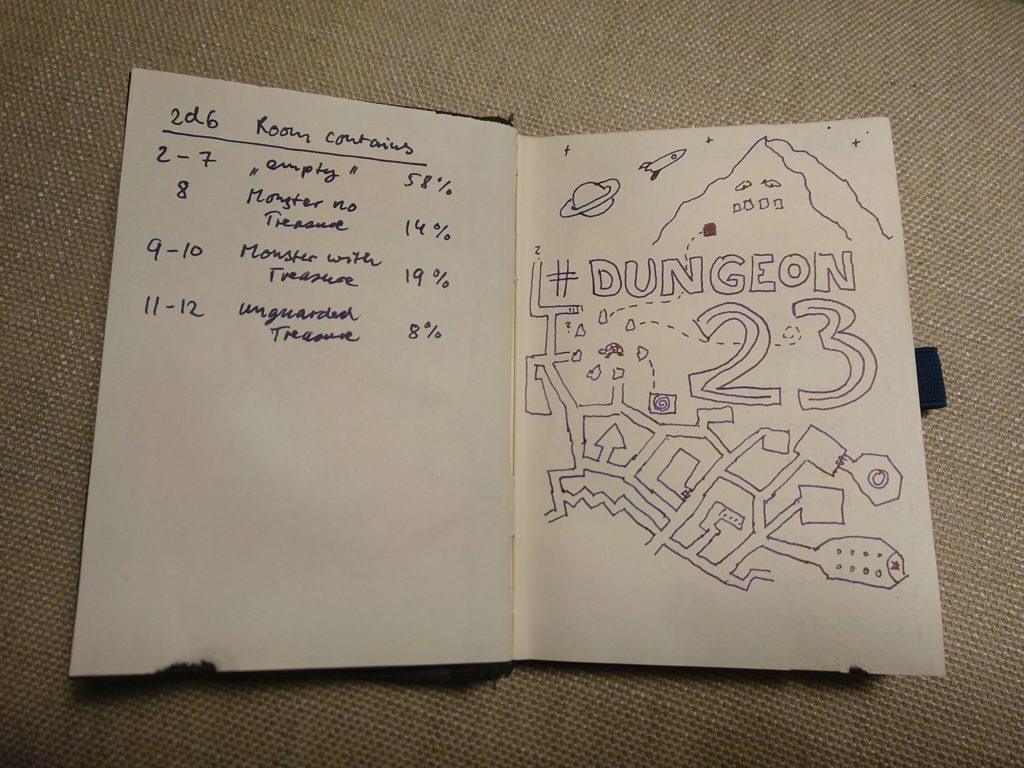 2d6 Room contains
2-7 „empty" 58%
8 Monster no
Treasure 14%
9-10 Monster with
Treasure 19%
11-12 unguarded
Treasure 8%
#DUNGEON
23
?
?